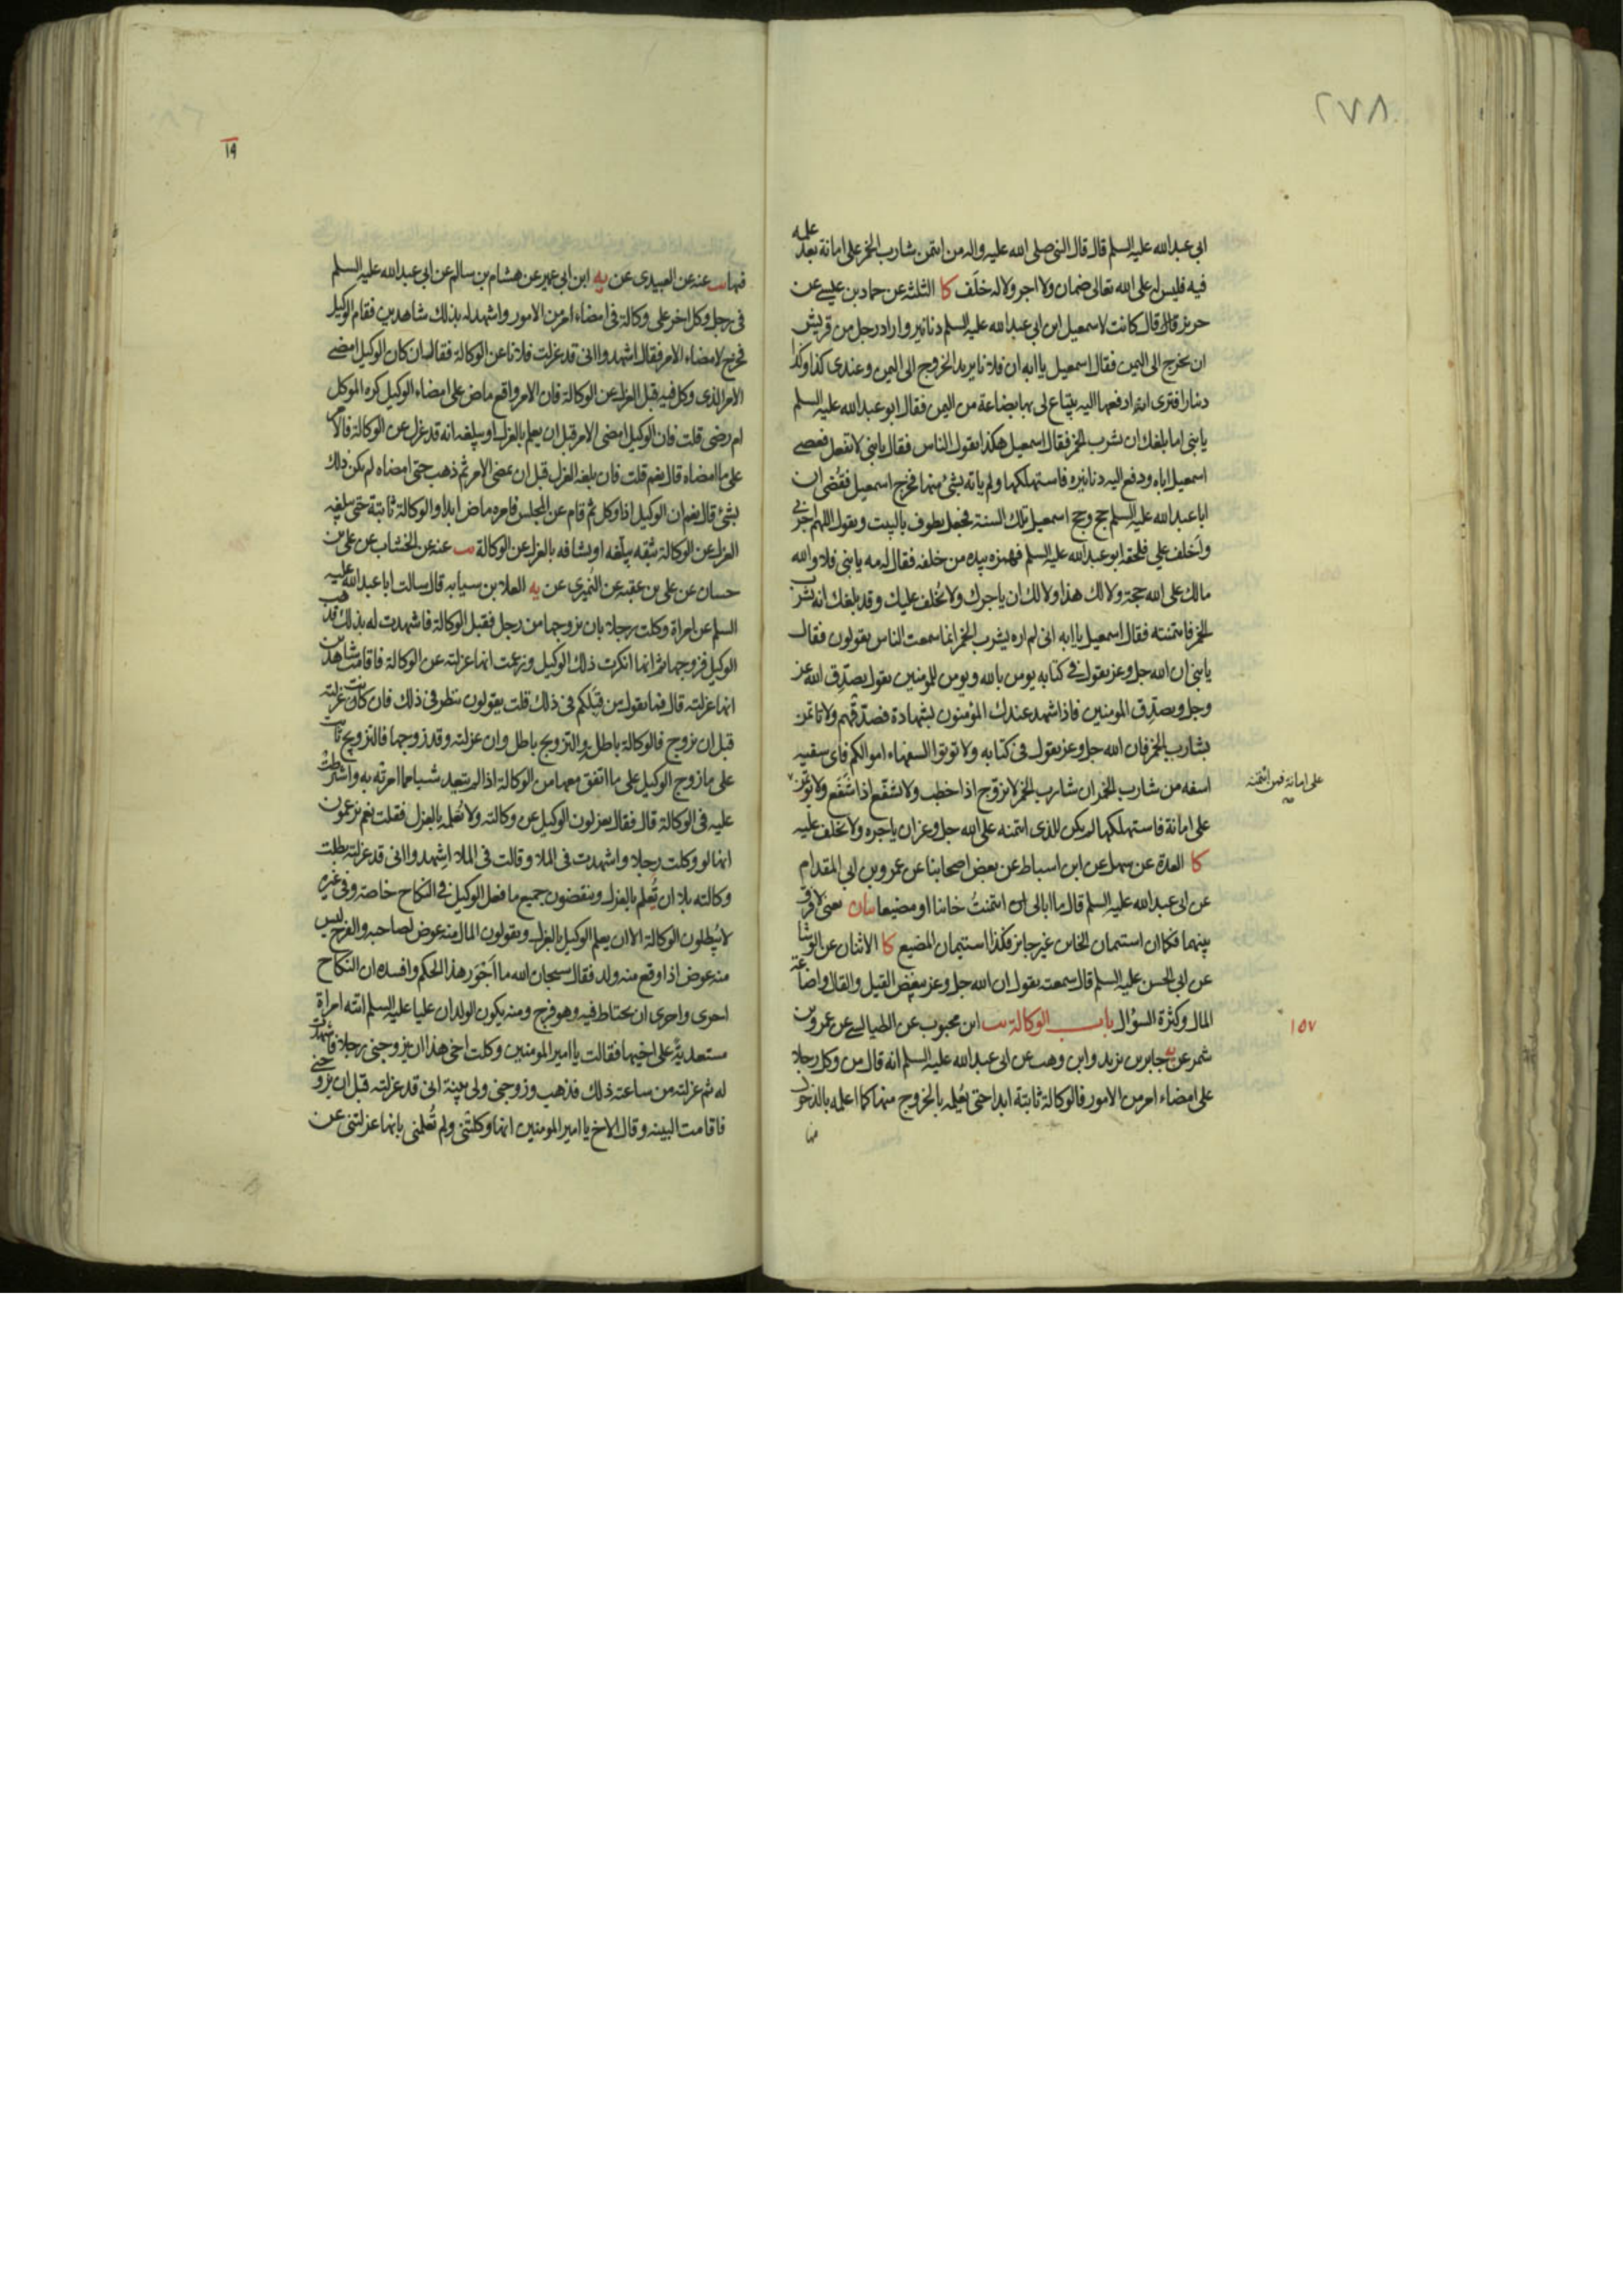 ٢٧٨
ابى عبدالله عليه السلم قال قال النبى صلى الله عليه واله من ائتمن شارب الخمر على امانة بعد علمه
فيه فليس له على الله تعالى ضمان ولا اجر ولا له خلف كا الثلثه عن حماد بن عيسى عن
حريز قال قال كانت لاسمعيل ابن ابى عبدالله عليه السلم دنانير واراد رجل من قريش
ان يخرج الى اليمن فقال اسمعيل يا ابه ان فلانا يريد الخروج الى اليمن وعندى كذا وكذا
دينارا فترى ان ادفعها اليه يبتاع لى بها بضاعة من اليمن فقال ابو عبدالله عليه السلم
يا بنى اما بلغك ان يشرب الخمر فقال اسمعيل هكذا يقول الناس فقال يا بنى لا تفعل فعصى
اسمعيل اباه ودفع اليه دنانيره فاستهلكها ولم ياته بشئ منها فخرج اسمعيل فقضى ان
ابا عبدالله عليه السلم حج وحج اسمعيل تلك السنة فجعل يطوف بالبيت ويقول اللهم اجرنى
واخلف على فلحقه ابو عبدالله عليه السلم فهمزه بيده من خلفه فقال له مه يا بنى فلا والله
مالك على الله حجة ولا لك هذا ولا لك ان ياجرك ولا يخلف عليك وقد بلغك انه يشرب
الخمر فائتمنته فقال اسمعيل يا ابه انى لم اره يشرب الخمر انما سمعت الناس يقولون فقال
يا بنى ان الله جل وعز يقول فى كتابه يومن بالله ويومن للمومنين يقول يصدق الله عز
وجل ويصدق المومنين فاذا شهد عندك المؤمنون بشهادة فصدقهم ولا تاتمن
بشارب الخمر فان الله جل وعز يقول فى كتابه ولا توتوا السفهاء اموالكم فاى سفيه
اسفه من شارب الخمر ان شارب الخمر لا يزوج اذا خطب ولا يشفع اذا شفع ولا يوتمن
على امانة فمن ائتمنه
على امانة فاستهلكها لم يكن للذى ائتمنه على الله جل وعز ان ياجره ولا يخلف عليه
كا العدة عن سهل عن ابن اسباط عن بعض اصحابنا عن عمرو بن ابى المقدام
عن ابى عبدالله عليه السلم قال ما ابالى ان ائتمنت خائنا او مضيعا بيان يعنى لا فرق
بينهما فكما ان استيمان الخاين غير جايز فكذا استيمان المضيع كا الاثنان عن الوشا
عن ابى الحسن عليه السلم قال سمعته يقول ان الله جل وعز يبغض القيل والقال واضاعة
المال وكثرة السؤال باب الوكالة يب ابن محبوب عن الطيالسى عن عمرو بن
١٥٧
شمر عن يه جابر بن يزيد وابن وهب عن ابى عبدالله عليه السلم انه قال من وكل رجلا
على امضاء امر من الامور فالوكالة ثابتة ابدا حتى يعلمه بالخروج منها كما اعلمه بالدخول
فيها
١٩
فيها يب عنه عن العبيدى عن يه ابن ابى عمير عن هشام بن سالم عن ابى عبدالله عليه السلم
فى رجل وكل اخر على وكالة فى امضاء امر من الامور واشهد له بذلك شاهدين فقام الوكيل
فخرج لامضاء الامر فقال اشهدوا انى قد عزلت فلانا عن الوكالة فقال ان كان الوكيل امضى
الامر الذى وكل فيه قبل العزل عن الوكالة فان الامر واقع ماض على امضاء الوكيل كره الموكل
ام رضى قلت فان الوكيل امضى الامر قبل ان يعلم بالعزل او يبلغه انه قد عزل عن الوكالة فالامر
على ما امضاه قال نعم قلت فان بلغه العزل قبل ان يمضى الامر ثم ذهب حتى امضاه لم يكن ذلك
بشئ قال نعم ان الوكيل اذا وكل ثم قام عن المجلس فامره ماض ابدا والوكالة ثابتة حتى يبلغه
العزل عن الوكالة بثقه يبلغه او يشافه بالعزل عن الوكالة يب عنه عن الخشاب عن على بن
حسان عن على بن عقبه عن النميرى عن يه العلا بن سيابه قال سالت ابا عبدالله عليه
السلم عن امراة وكلت رجلا بان يزوجها من رجل فقبل الوكالة فاشهدت له بذلك فذهب
الوكيل فزوجها ثم انها انكرت ذلك الوكيل وزعمت انها عزلته عن الوكالة فاقامت شاهدين
انها عزلته قال فما يقول من قبلكم فى ذلك قلت يقولون ينظر فى ذلك فان كانت عزلته
قبل ان يزوج فالوكالة باطل والتزويج باطل وان عزلته وقد زوجها فالتزويج ثابت
على ما زوج الوكيل على ما اتفق معها من الوكالة اذا لم يتعد شيا مما امرته به واشترطت
عليه فى الوكالة قال فقال يعزلون الوكيل عن وكالته ولا تعلمه بالعزل فقلت نعم يزعمون
انها لو وكلت رجلا واشهدت فى الملا وقالت فى الملا اشهدوا انى قد عزلته بطلت
وكالته بلا ان تعلم بالعزل وينقضون جميع ما فعل الوكيل فى النكاح خاصة وفى غيره
لا يبطلون الوكالة الا ان يعلم الوكيل بالعزل ويقولون المال منه عوض لصاحبه والفرج ليس
منه عوض اذا وقع منه ولد فقال سبحان الله ما اجور هذا الحكم وافسده ان النكاح
احرى واحرى ان يحتاط فيه وهو فرج ومنه يكون الولد ان عليا عليه السلم اتته امراة
مستعدية على اخيها فقالت يا امير المومنين وكلت اخى هذا ان يزوجنى رجلا فاشهدت
له ثم عزلته من ساعته ذلك فذهب وزوجنى ولى بينة انى قد عزلته قبل ان يزوجنى
فاقامت البينه وقال الاخ يا امير المومنين انها وكلتنى ولم تعلمنى بانها عزلتنى عن